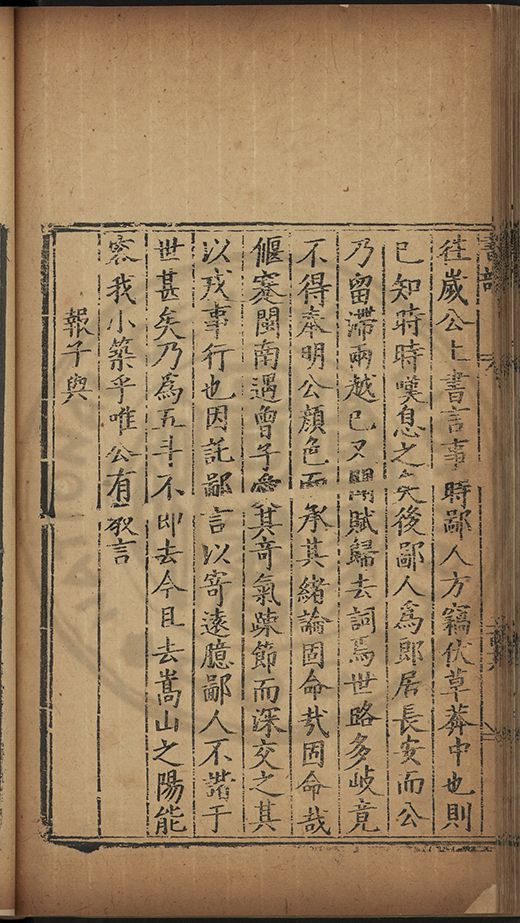 往歲公上書言事時鄙人方竊伏草莽中也則
已知時時嘆息之矣後鄙人為郎居長安而公
乃留滯兩越已又聞賦歸去詞焉世路多岐竟
不得奉明公顏色而承其緒論固命哉固命哉
偃蹇閩南遇曾子愛其奇氣踈節而深交之其
以戎事行也因託鄙言以寄遠臆鄙人不諧于
世甚矣乃為五斗不即去今且去嵩山之陽能
容我小築乎唯公有教言
報子與